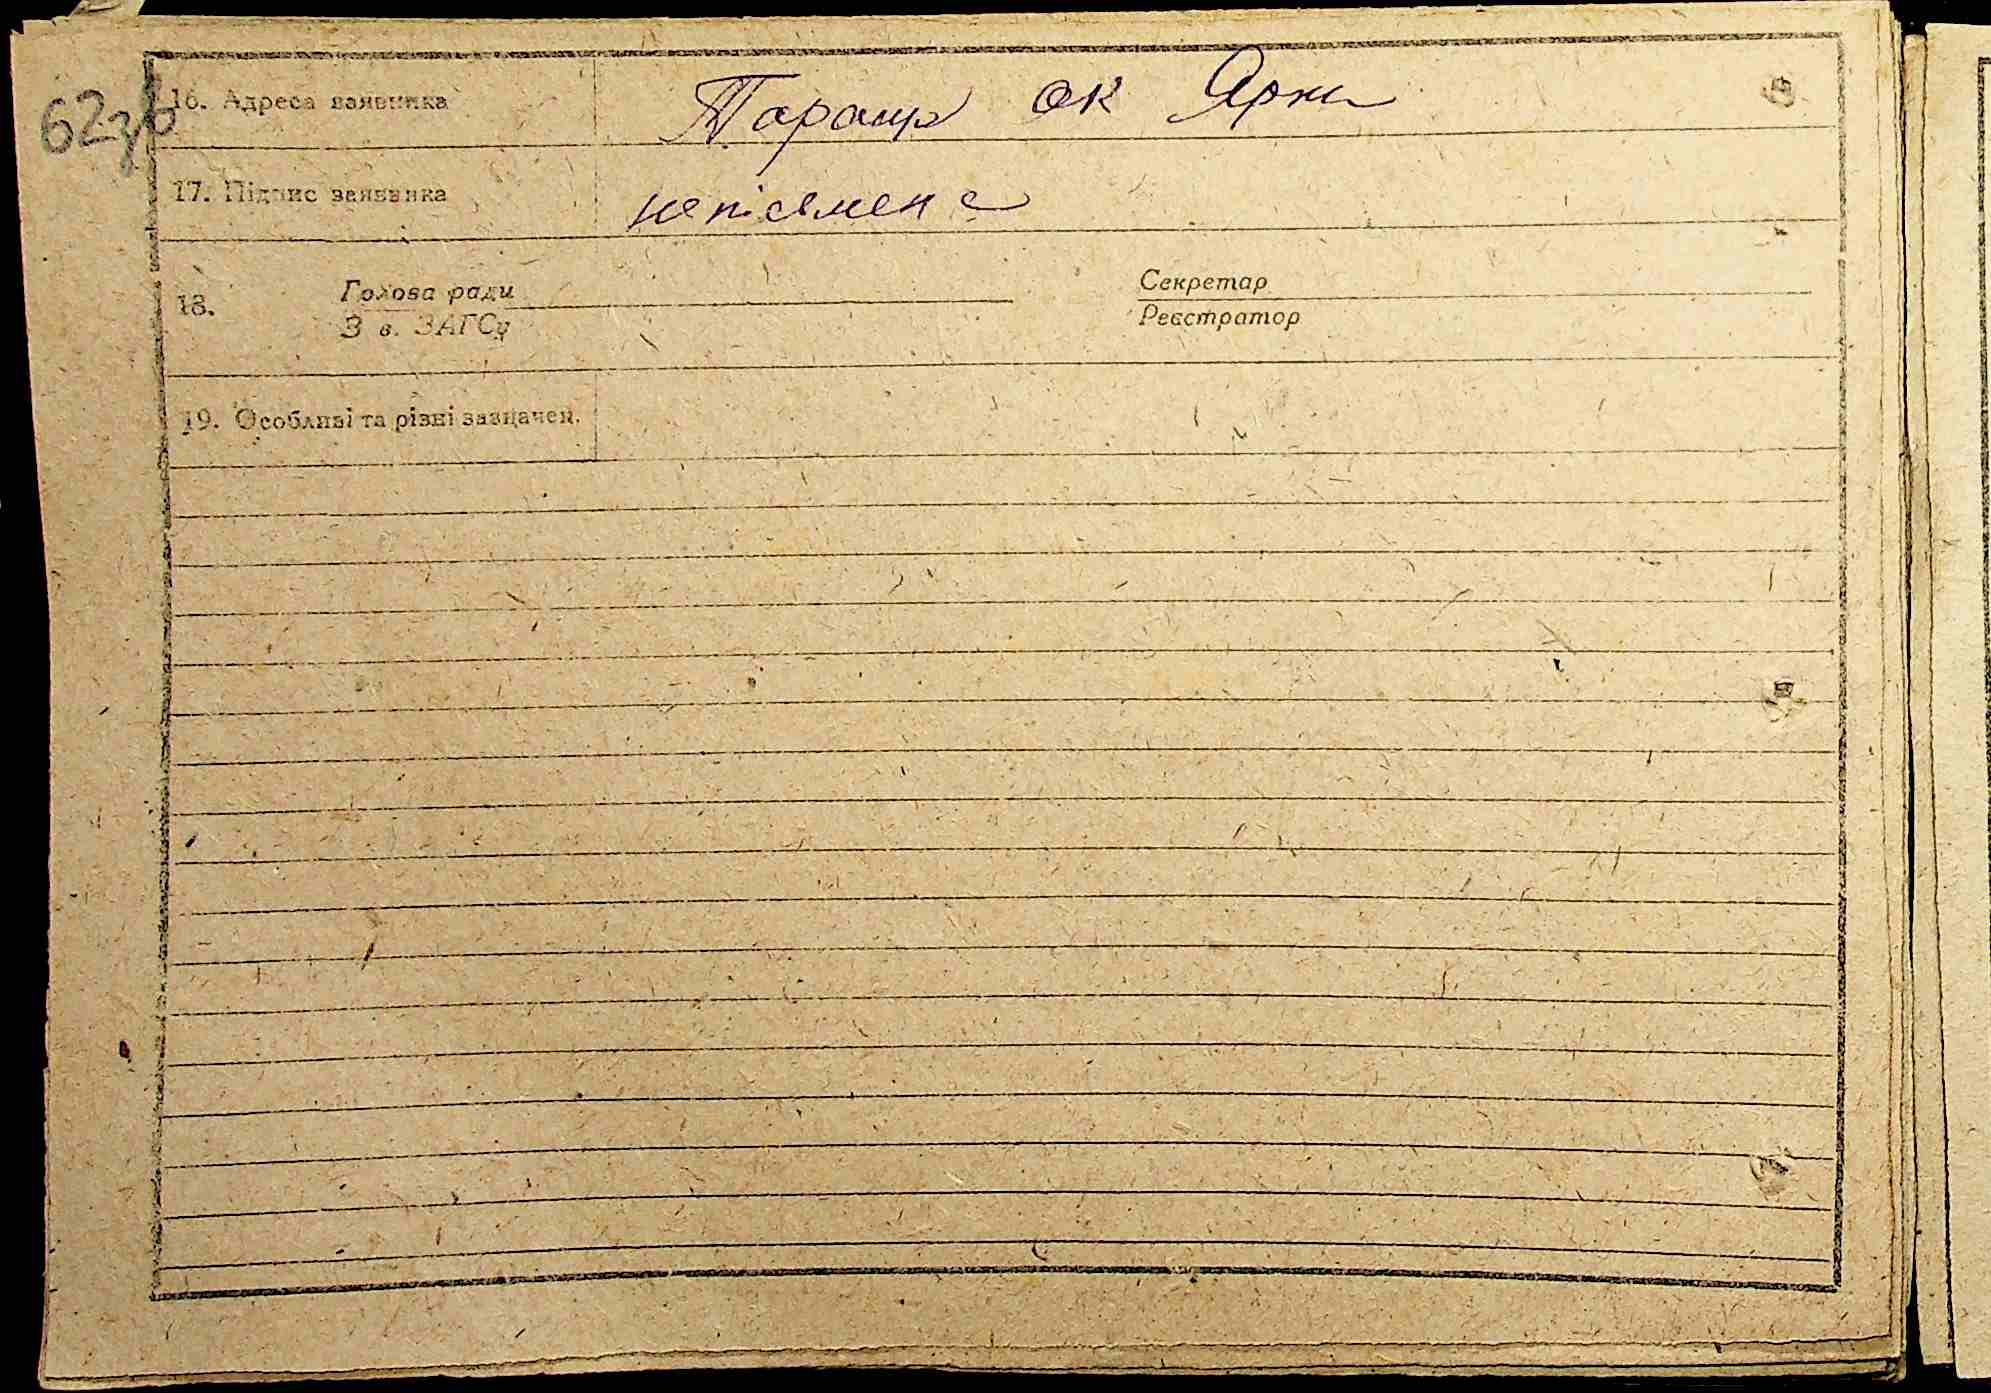 62зв
16. Адреса заявника Тараща ок Ярки
17. Підпис заявника непісьмене
18. Голова ради Секретар
Зав. ЗАГСу Реєстратор
19. Особливі та різні зазначен.